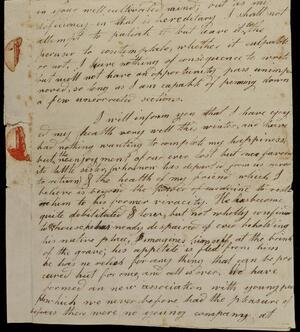 in your well cultivated mind; but as my
deficiency in that is hereditary I shall not
attempt to paliate it but leave it, for
to contemplate, whether it culpable
or not. I have nothing of consequence to write
but will not have an opportunity pass unimp
roved, so long as I am capable of penning down
a few uncorrected sections.
I will inform you that I have enjoy
ed my health very well this winter, and have
had nothing wanting to complete my happiness
but the enjoyment of our ever dear but one parent
its little sister, that now lies departed from us never
to return; & the health of my friend which I
believe is beyond the power of medicine to resto
re him to his former veracity. He has become
quite debilitated & low, but not wholly confined
to house, has nearly despaired of ever beholding
his native place, & imagines himself at the brink
of the grave; his appetite is fled from him
he has no relish for any thing that can be pro
cured but for one, and all is over. We have
formed an new association with young peo
ple which we never before had the pleasure of
before there were no young company, at